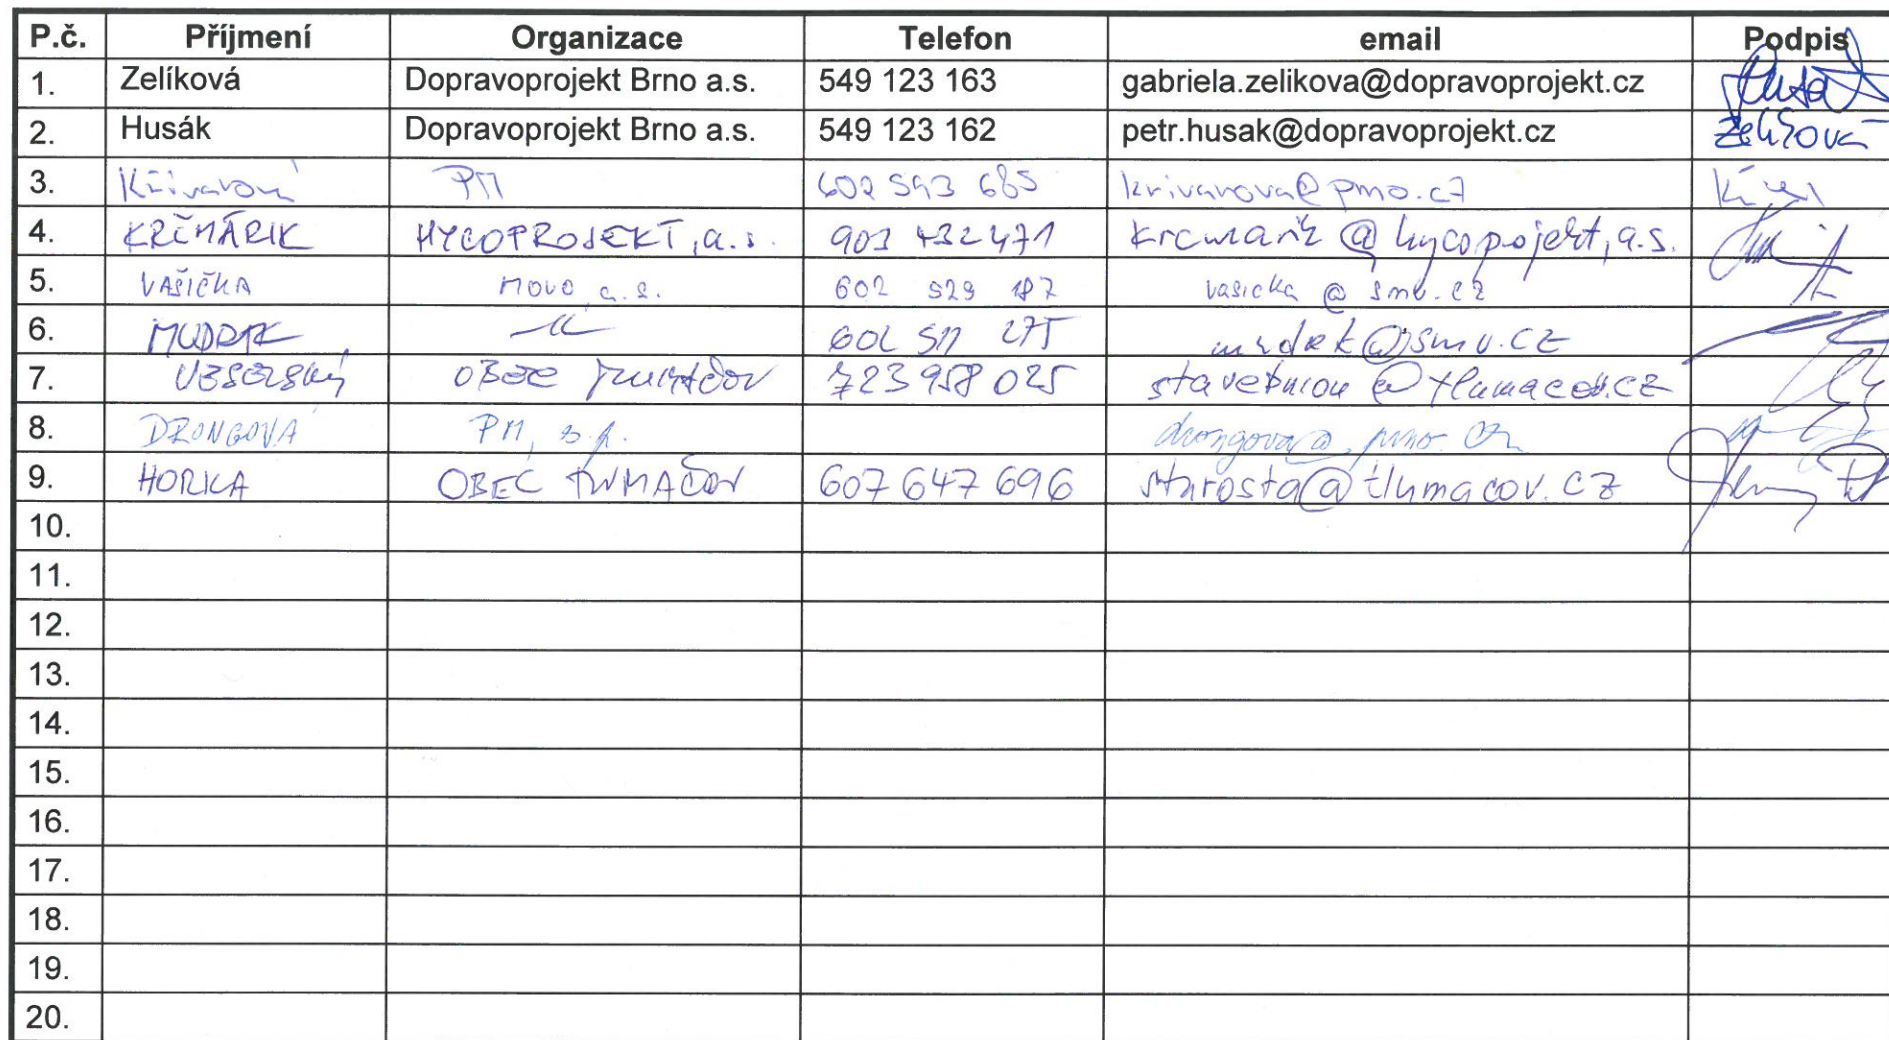 P.č. Příjmení Organizace Telefon email Podpis
1. Zelíková Dopravoprojekt Brno a.s. 549 123 163 gabriela.zelikova@dopravoprojekt.cz
2. Husák Dopravoprojekt Brno a.s. 549 123 162 petr.husak@dopravoprojekt.cz
3. Křivanová PM 602 593 685 krivanova@pmo.cz
4. KRČMÁRIK HYCOPROJEKT, a.s. 903 432 471 krcmarik@hycopojekt, a.s.
5. VAŠIČKA MOVO a.s. 602 529 187 vasicka @ smv.cz
6. MUDRÁK 602 511 275 mudrak@smv.cz
7. VESELSKÝ OBEC TLUMAČOV 723 958 025 @tlumacov.cz
8. DRONGOVÁ PM, s.p. drongova@pmo.cz
9. HORKA OBEC TLUMAČOV 607 647 696 starosta@tlumacov.cz
10.
11.
12.
13.
14.
15.
16.
17.
18.
19.
20.